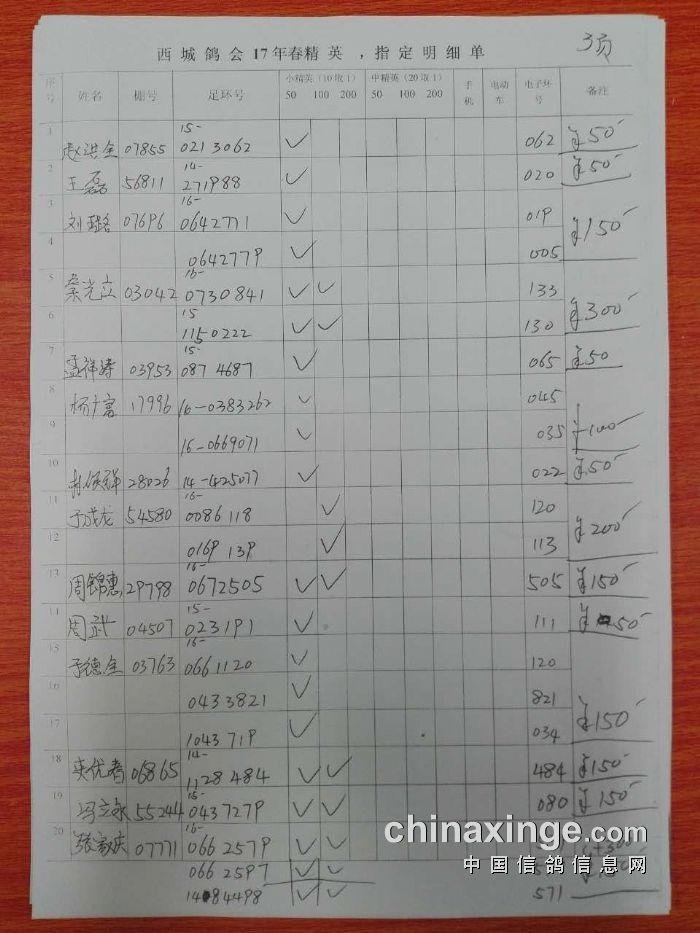 3页
西城鸽会17年春精英，指定明细单
序号 姓名 棚号 足环号 小精英（10取1） 50 100 200 中精英（20取1） 50 100 200 手机 电动车 电子环号 备注
1 赵洪全 07855 15- 0213062 ✓ 062 ¥50-
2 王磊 56811 14- 271988 ✓ 020 ¥50-
3 刘璐 07696 16- 0642771 ✓ 019
4 0642779 ✓ 005 ¥150-
5 桑光立 03042 16- 0730841 ✓ ✓ 133
6 15 1150222 ✓ ✓ 130 ¥300-
7 孟祥涛 03953 15- 0874687 ✓ 065 ¥50
8 杨广富 17996 16-0383262 ✓ 045
9 16-0669071 ✓ 035 ¥100-
10 28026 14-425077 ✓ 022 ¥50-
11 于成龙 54580 16- 0086118 ✓ 120
12 0169139 ✓ 113 ¥200-
13 周锦惠 29798 16- 0672505 ✓ ✓ 505 ¥150-
14 周武 04507 15- 023191 ✓ 111 ¥50-
15 于德全 03763 16- 0661120 ✓ 120
16 0433821 ✓ 821
17 1043719 ✓ 034 ¥150-
18 06865 14- 1128484 ✓ ✓ 484 ¥150-
19 冯立永 55244 15- 0437279 ✓ ✓ 080 ¥150-
20 张家庆 07771 16- 0662579 ✓ ✓
0662597 ✓ ✓
14 84498 ✓ ✓ 571
chinaxinge.com
中国信鸽信息网